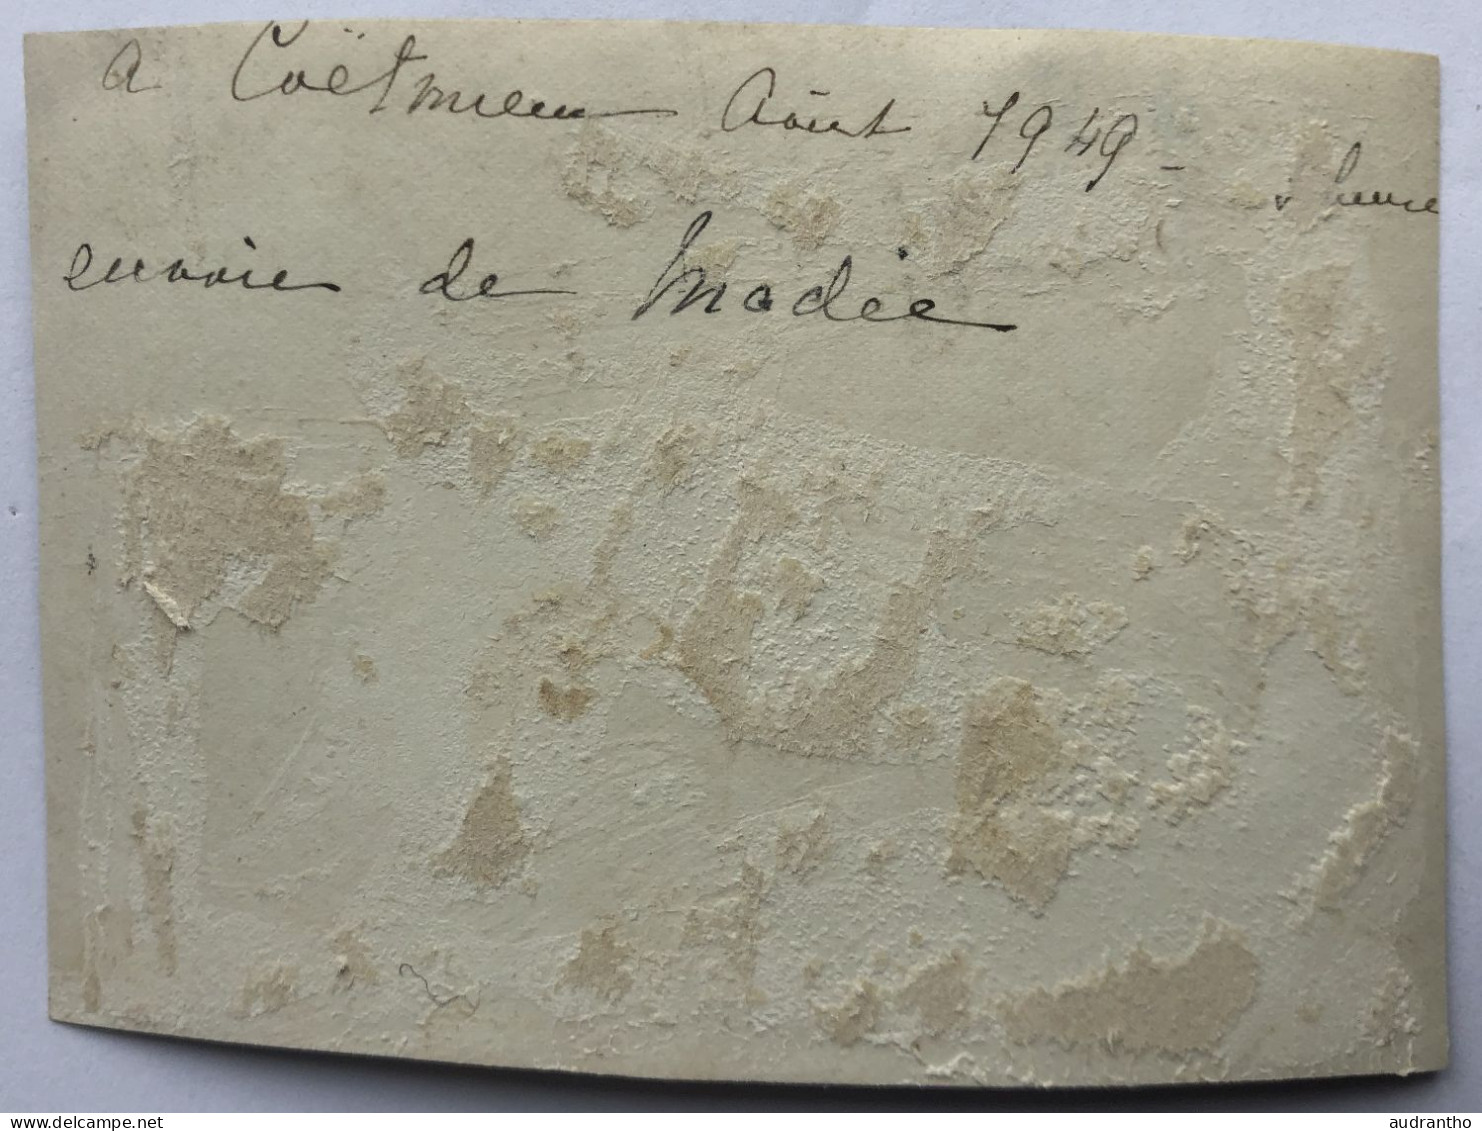 a Coëtmieux Août 1949 - heure
envoie de Madée
delcampe.net
audrantho